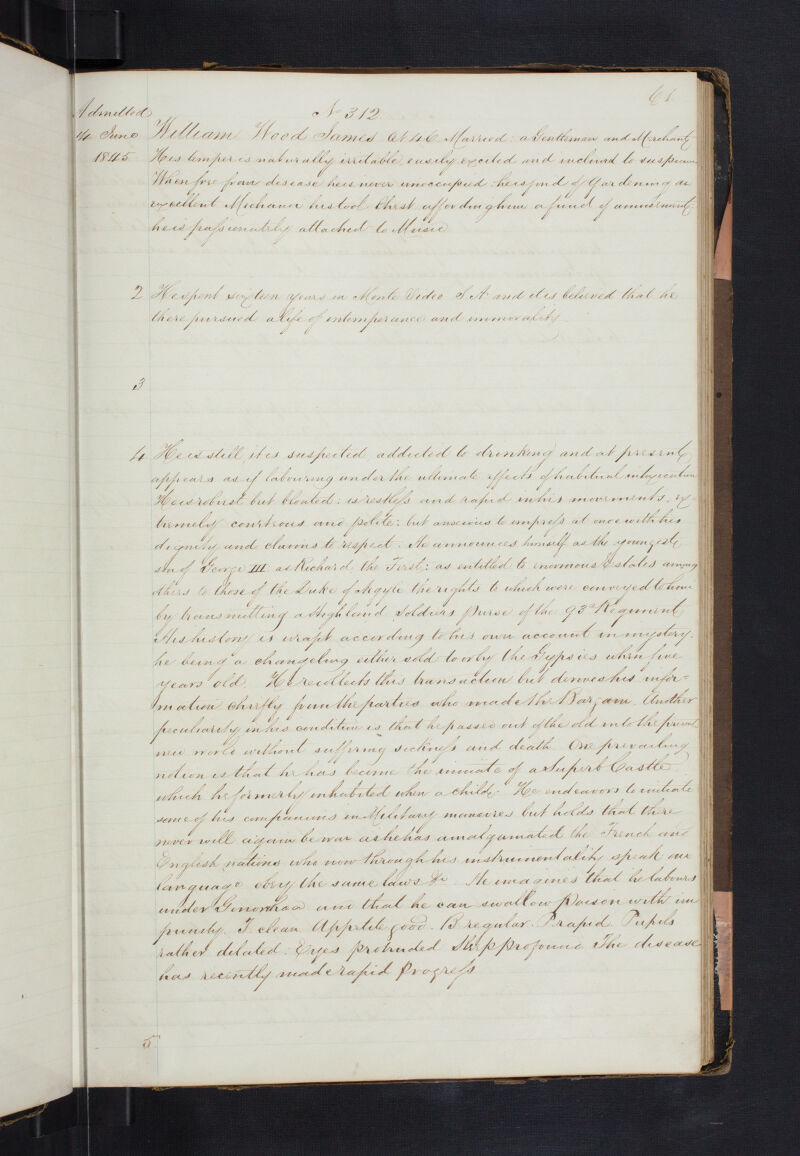 61.
Admitted
No 312.
14 June
1845
William Wood James æt 46. Married: a Gentleman and Merchant
His temper is naturally irritable easily excited and inclined to suspicion
When free from disease he is never unoccupied he is fond of Gardening an
excellent Mechanic his tool Chest affording him a fund of amusement
he is passionately attached to Music
2 He spent sixteen years in Monte Video S. A. and it is believed that he
there pursued a life of intemperance and immorality
3
4 He is still it is suspected addicted to drinking and at present
appears as if labouring under the ultimate effects of habitual intoxication
He is robust but bloated: is restless and rapid in his movements, ex-
tremely courteous and polite: but anxious to impress at once with his
dignity and claims to respect. He announces himself as the youngest
son of George III as Richard the First: as entitled to enormous Estates among
others to those of the Duke of Argyle the rights to which were conveyed to him
by transmitting a Highland Soldiers Purse of the 93d Regiment
His history is wrapt according to his own account in mystery.
he being a changeling either sold to or by the Gypsies when five
years old. He recollects this transaction but derives his infor-
mation chiefly from the parties who made the Bargain. Another
peculiarity in his condition is that he passed out of the old into the present
new world without suffering sickness and death. One prevailing
notion is that he has become the inmate of a Superb Castle
which he formerly inhabited when a child. He endeavors to initiate
some of his companions in Military manœvres but holds that there
never will again be war as he has amalgamated the French and
English nations who now through his instrumentality speak one
language obey the same laws &c He imagines that he labours
under Gonorrhœa and that he can swallow poison with im
punity. T. clean Appetite good. B regular. P rapid. Pupils
rather dilated. Eyes protruded Sleep profound The disease
has recently made rapid Progress
5